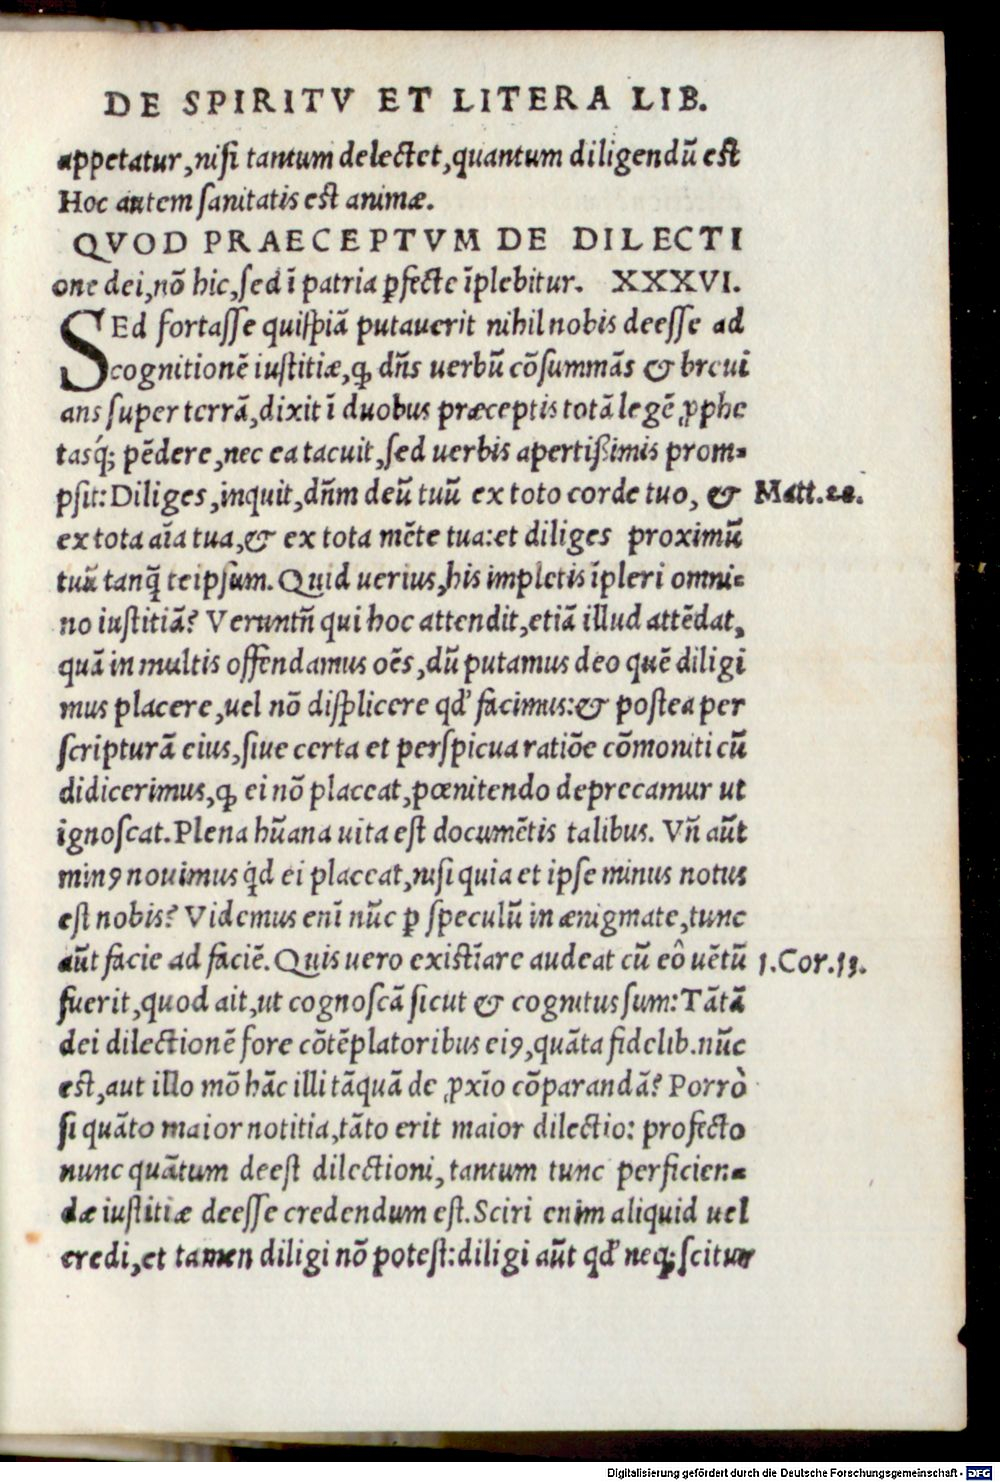 DE SPIRITV ET LITERA LIB.
appetatur, nisi tantum delectet, quantum diligendũ est
Hoc autem sanitatis est animæ.
QVOD PRAECEPTVM DE DILECTI
one dei, nõ hic, sed ĩ patria ꝑfecte ĩplebitur. XXXVI.
SEd fortasse quispiã putauerit nihil nobis deesse ad
cognitionẽ iustitiæ, ꝙ dñs uerbũ cõsummãs & breui
ans super terrã, dixit ĩ duobus præceptis totã legẽ ꝓphe
tasq́; pẽdere, nec ea tacuit, sed uerbis apertißimis prom-
psit: Diliges, inquit, dñm deũ tuũ ex toto corde tuo, & Matt.22.
ex tota aĩa tua, & ex tota mẽte tua: et diliges proximũ
tuũ tanq̃ teipsum. Quid uerius, his impletis ĩpleri omni-
no iustitiã? Veruntñ qui hoc attendit, etiã illud attẽdat,
quã in multis offendamus oẽs, dũ putamus deo quẽ diligi
mus placere, uel nõ displicere qđ facimus: & postea per
scripturã eius, siue certa et perspicua ratiõe cõmoniti cũ
didicerimus, ꝙ ei nõ placeat, pœnitendo deprecamur ut
ignoscat. Plena hũana uita est documẽtis talibus. Vñ aũt
minꝰ nouimus q́d ei placeat, nisi quia et ipse minus notus
est nobis? Videmus enĩ nũc ꝑ speculũ in ænigmate, tunc
aũt facie ad faciẽ. Quis uero existĩare audeat cũ eô uẽtũ 1.Cor.13.
fuerit, quod ait, ut cognoscã sicut & cognitus sum: Tãtã
dei dilectionẽ fore cõtẽplatoribus eiꝰ, quãta fidelib. nũc
est, aut illo mõ hãc illi tãquã de ꝓxĩo cõparandã? Porrò
si quãto maior notitia, tãto erit maior dilectio: profecto
nunc quãtum deest dilectioni, tantum tunc perficien-
dæ iustitiæ deesse credendum est. Sciri enim aliquid uel
credi, et tamen diligi nõ potest: diligi aũt qđ neq; scitur
Digitalisierung gefördert durch die Deutsche Forschungsgemeinschaft - DFG